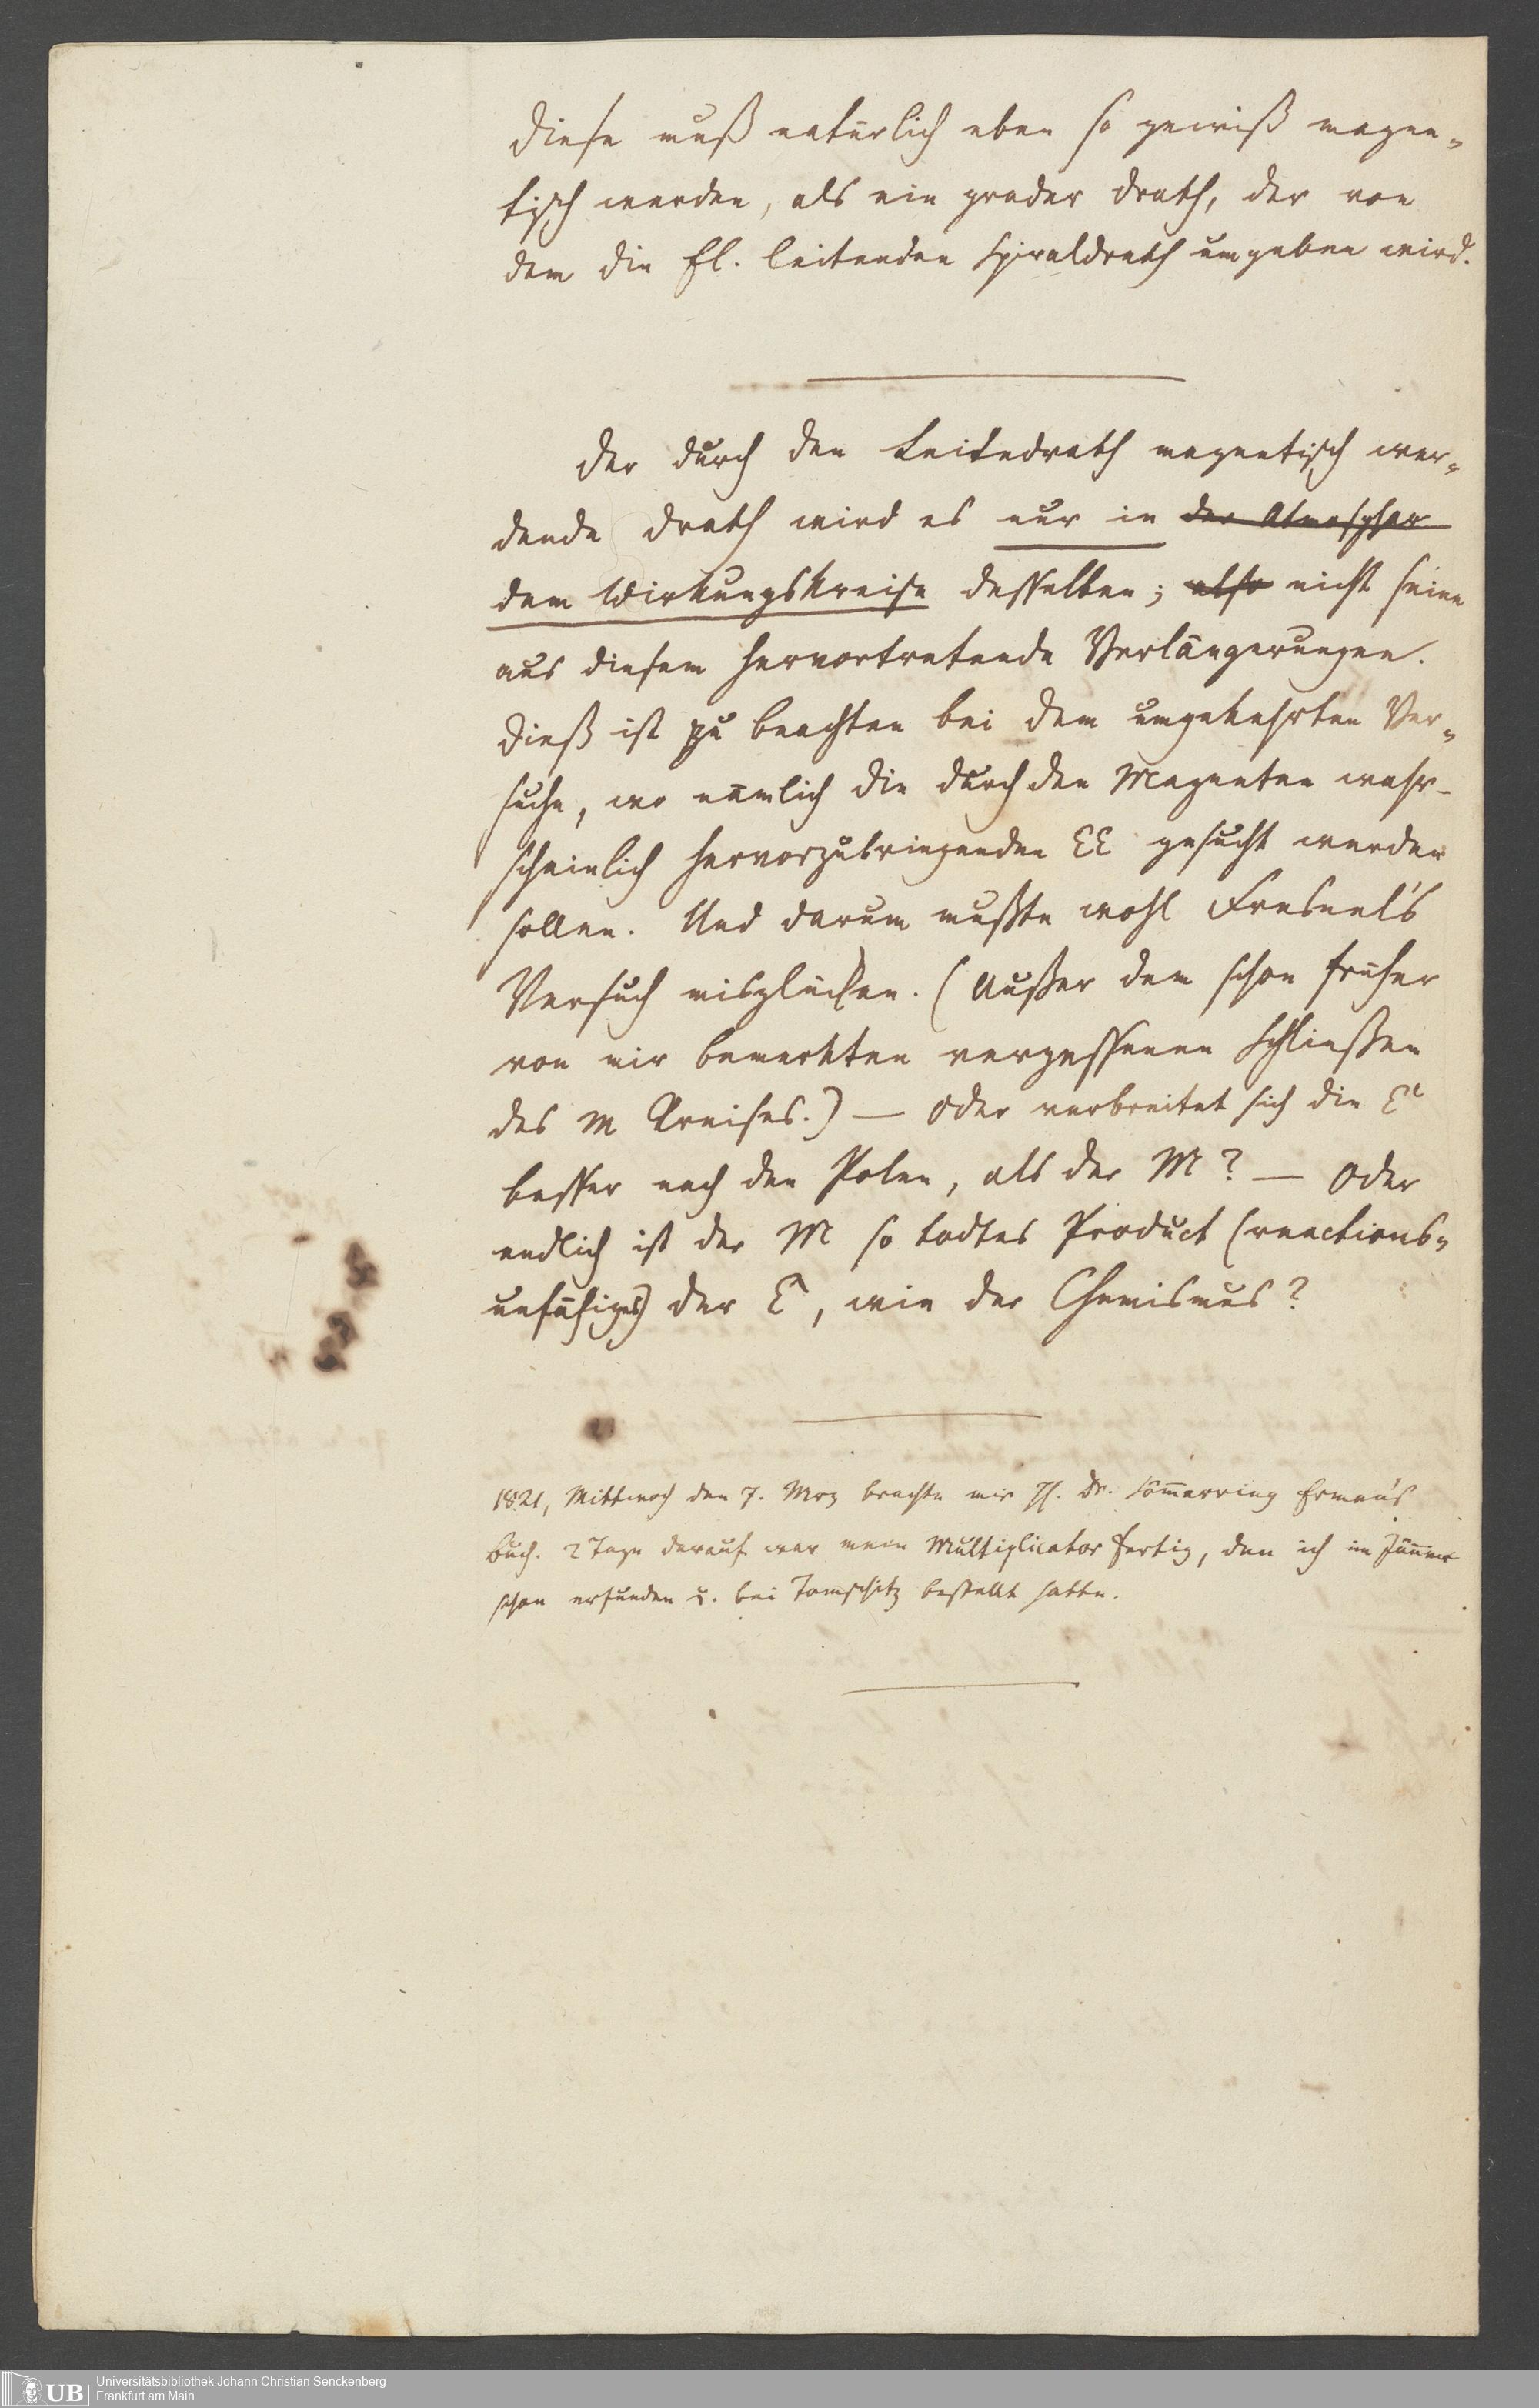 diese muß natürlich eben so gewiß magne-
tisch werden, als ein grader Drath, der von
dem die El. leitenden Spiraldrath umgeben wird.
Der durch den Leitedrath magnetisch wer-
dende Drath wird es nur in der Atmosphär
dem Wirkungskreise desselben; also nicht seine
aus diesem hervortretende Verlängerungen.
Dieß ist zu beachten bei dem umgekehrten Ver-
suche, wo nämlich die durch den Magneten wahr-
scheinlich hervorzubringenden EE gesucht werden
sollen. Und darum mußte wohl Fresnel's
Versuch misglücken. (Außer dem schon früher
von mir bemerkten vergessenen Schließen
des M Kreises.) — Oder verbreitet sich die E
besser nach den Polen, als der M? — Oder
endlich ist der M so todtes Product (reactions-
unfähiges) der E, wie der Chemismus?
1821, Mittwoch den 7. Mrz brachte mir H. Dr. Sömerring Erman's
Buch. 2 Tage darauf war mein Multiplicator fertig, den ich im Jänner
schon erfunden u. bei Tomschitz bestellt hatte.
Universitätsbibliothek Johann Christian Senckenberg
Frankfurt am Main
UB